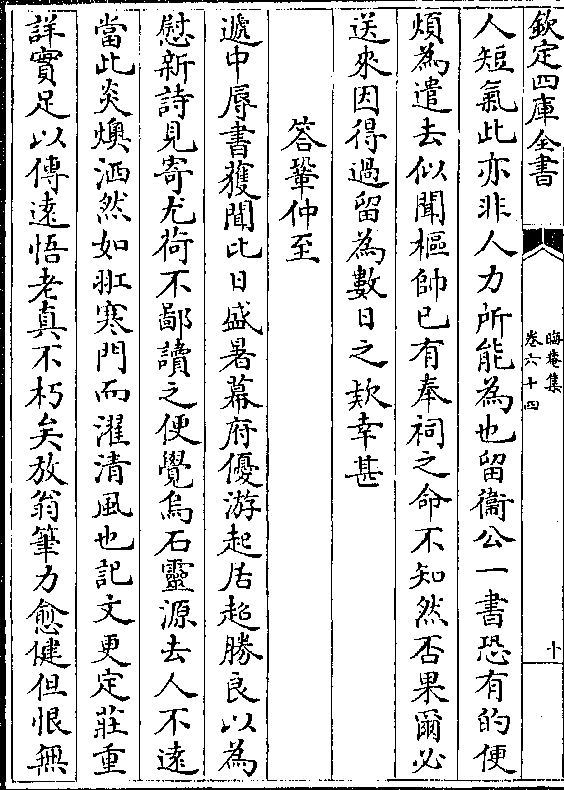 欽定四庫全書
晦庵集
卷六十四
十
人短氣此亦非人力所能為也留衞公一書恐有的便
煩為遣去似聞樞帥已有奉祠之命不知然否果爾必
送來因得過留為數日之欵幸甚
答鞏仲至
遞中辱書獲聞比日盛暑幕府優游起居超勝良以為
慰新詩見寄尤荷不鄙讀之便覺烏石靈源去人不遠
當此炎燠洒然如𦐇寒門而濯清風也記文更定莊重
詳實足以傳遠悟老真不朽矣放翁筆力愈健但恨無